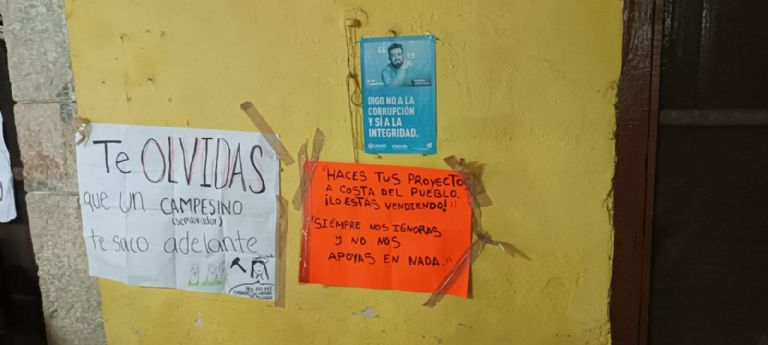 Te OLVIDAS
que un CAMPESINO
(sembrador)
te saco adelante
NO NO ME
DIGO NO A LA
CORRUPCIÓN
Y SÍ A LA
INTEGRIDAD.
USAID
"HACES TUS PROYECTO
A COSTA DEL PUEBLO.
¡LO ESTÁS VENDIENDO!"
"SIEMPRE NOS IGNORAS
Y NO NOS
APOYAS EN NADA."